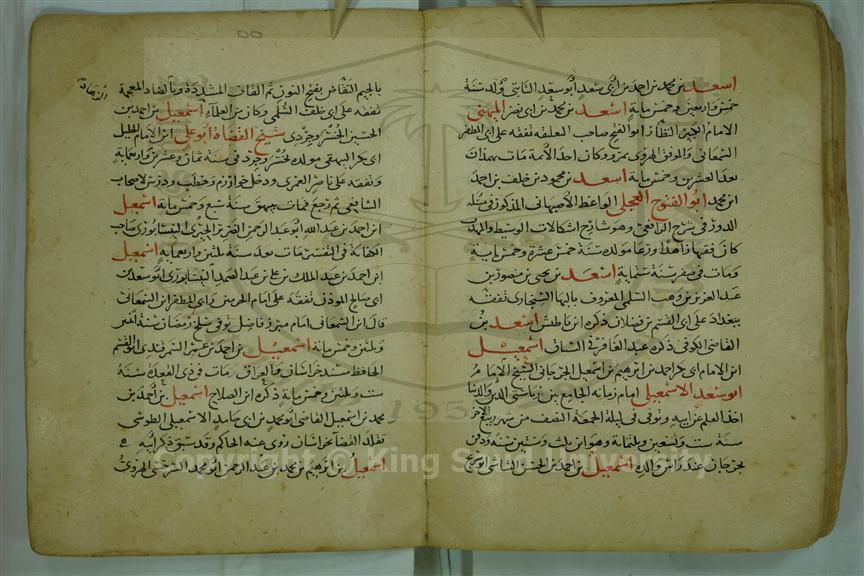 اسعد بن محمد بن احمد بن ابى سعد ابو سعد الثابتى ولد سنة
خمس واربعين وخمس ماية اسعد بن محمد بن ابى نصر الميهنى
الامام المجيرى النظار ابو الفتح صاحب المعلقة تفقه على ابى المظفر
السمعانى والموفق الهروى بمرو وكان احد الأئمة مات بهمدان
بعد العشرين وخمس ماية اسعد بن محمود بن خلف بن احمد
ابن محمد ابو الفتوح العجلى الواعظ الأصبهانى المذكور فى مسئلة
الدور فى شرح الرافعى وهو شارح اشكالات الوسيط والمهذب
كان فقيها زاهدا ورعا مولده سنة خمس عشرة وخمس ماية
ومات فى صفر سنة ستماية اسعد بن يحيى بن منصور بن
عبد العزيز بن وهب السلمى المعروف بالبها السنجارى تفقه
ببغداد على ابى القسم بن فضلان ذكره ابن باطيش اسعد بن
القاضى الكوفى ذكره عبد الغافر فى السياق اسمعيل
ابن الامام ابى بكر احمد بن ابرهيم بن اسمعيل الجرجانى الشيخ الامام
ابو سعد الاسمعيلى امام زمانه الجامع بين رياستى الدين والدنيا
اخذ العلم عن ابيه وتوفى فى ليلة الجمعة النصف من شهر ربيع الاخر
سنة ست وتسعين وثلثماية وهو ابن ثلث وستين سنة ودفن
بجرجان عند راس والده اسمعيل بن احمد بن الحسن الشاشى ابو سريج
بالجيم النقاض بفتح النون ثم القاف المشددة وبالضاد المعجمة
تفقه على ابى خلف السلمى وكان من العلماء اسمعيل بن احمد بن
الحسين الخسروجردى شيخ القضاة ابو على ابن الامام الجليل
ابى بكر البيهقى مولده بخسروجرد فى سنة ثمان وعشرين واربعماية
وتفقه على ناصر العمرى ودخل خوارزم وخطب ودرس لاصحاب
الشافعى ثم رجع فمات ببيهق سنة سبع وخمس ماية اسمعيل
ابن احمد بن عبد الله ابو عبد الرحمن الضرير الحيرى النيسابورى صاحب
الكفاية فى التفسير مات بعد سنة ثلثين واربعماية اسمعيل
ابن احمد بن عبد الملك بن على بن عبد الصمد النيسابورى ابو سعد بن
ابى صالح المؤذن تفقه على امام الحرمين وابى المظفر ابن السمعانى
قال ابن السمعانى امام مبرز فاضل توفى سلخ رمضان سنة اثنين
وثلثين وخمس ماية اسمعيل بن احمد بن عمر السمرقندى ابو القسم
الحافظ مسند خراسان والعراق مات فى ذى القعدة سنة
ست وثلثين وخمس ماية ذكره ابن الصلاح اسمعيل بن احمد بن
محمد بن اسمعيل القاضى ابو محمد بن ابى حامد الاسمعيلى الطوسى
تقلد القضا بخراسان روى عنه الحاكم وقد سبق ذكر ابيه
اسمعيل بن ابرهيم بن محمد بن عبد الرحمن ابو محمد السرخسى الهروى
Copyright © King Saud University
195